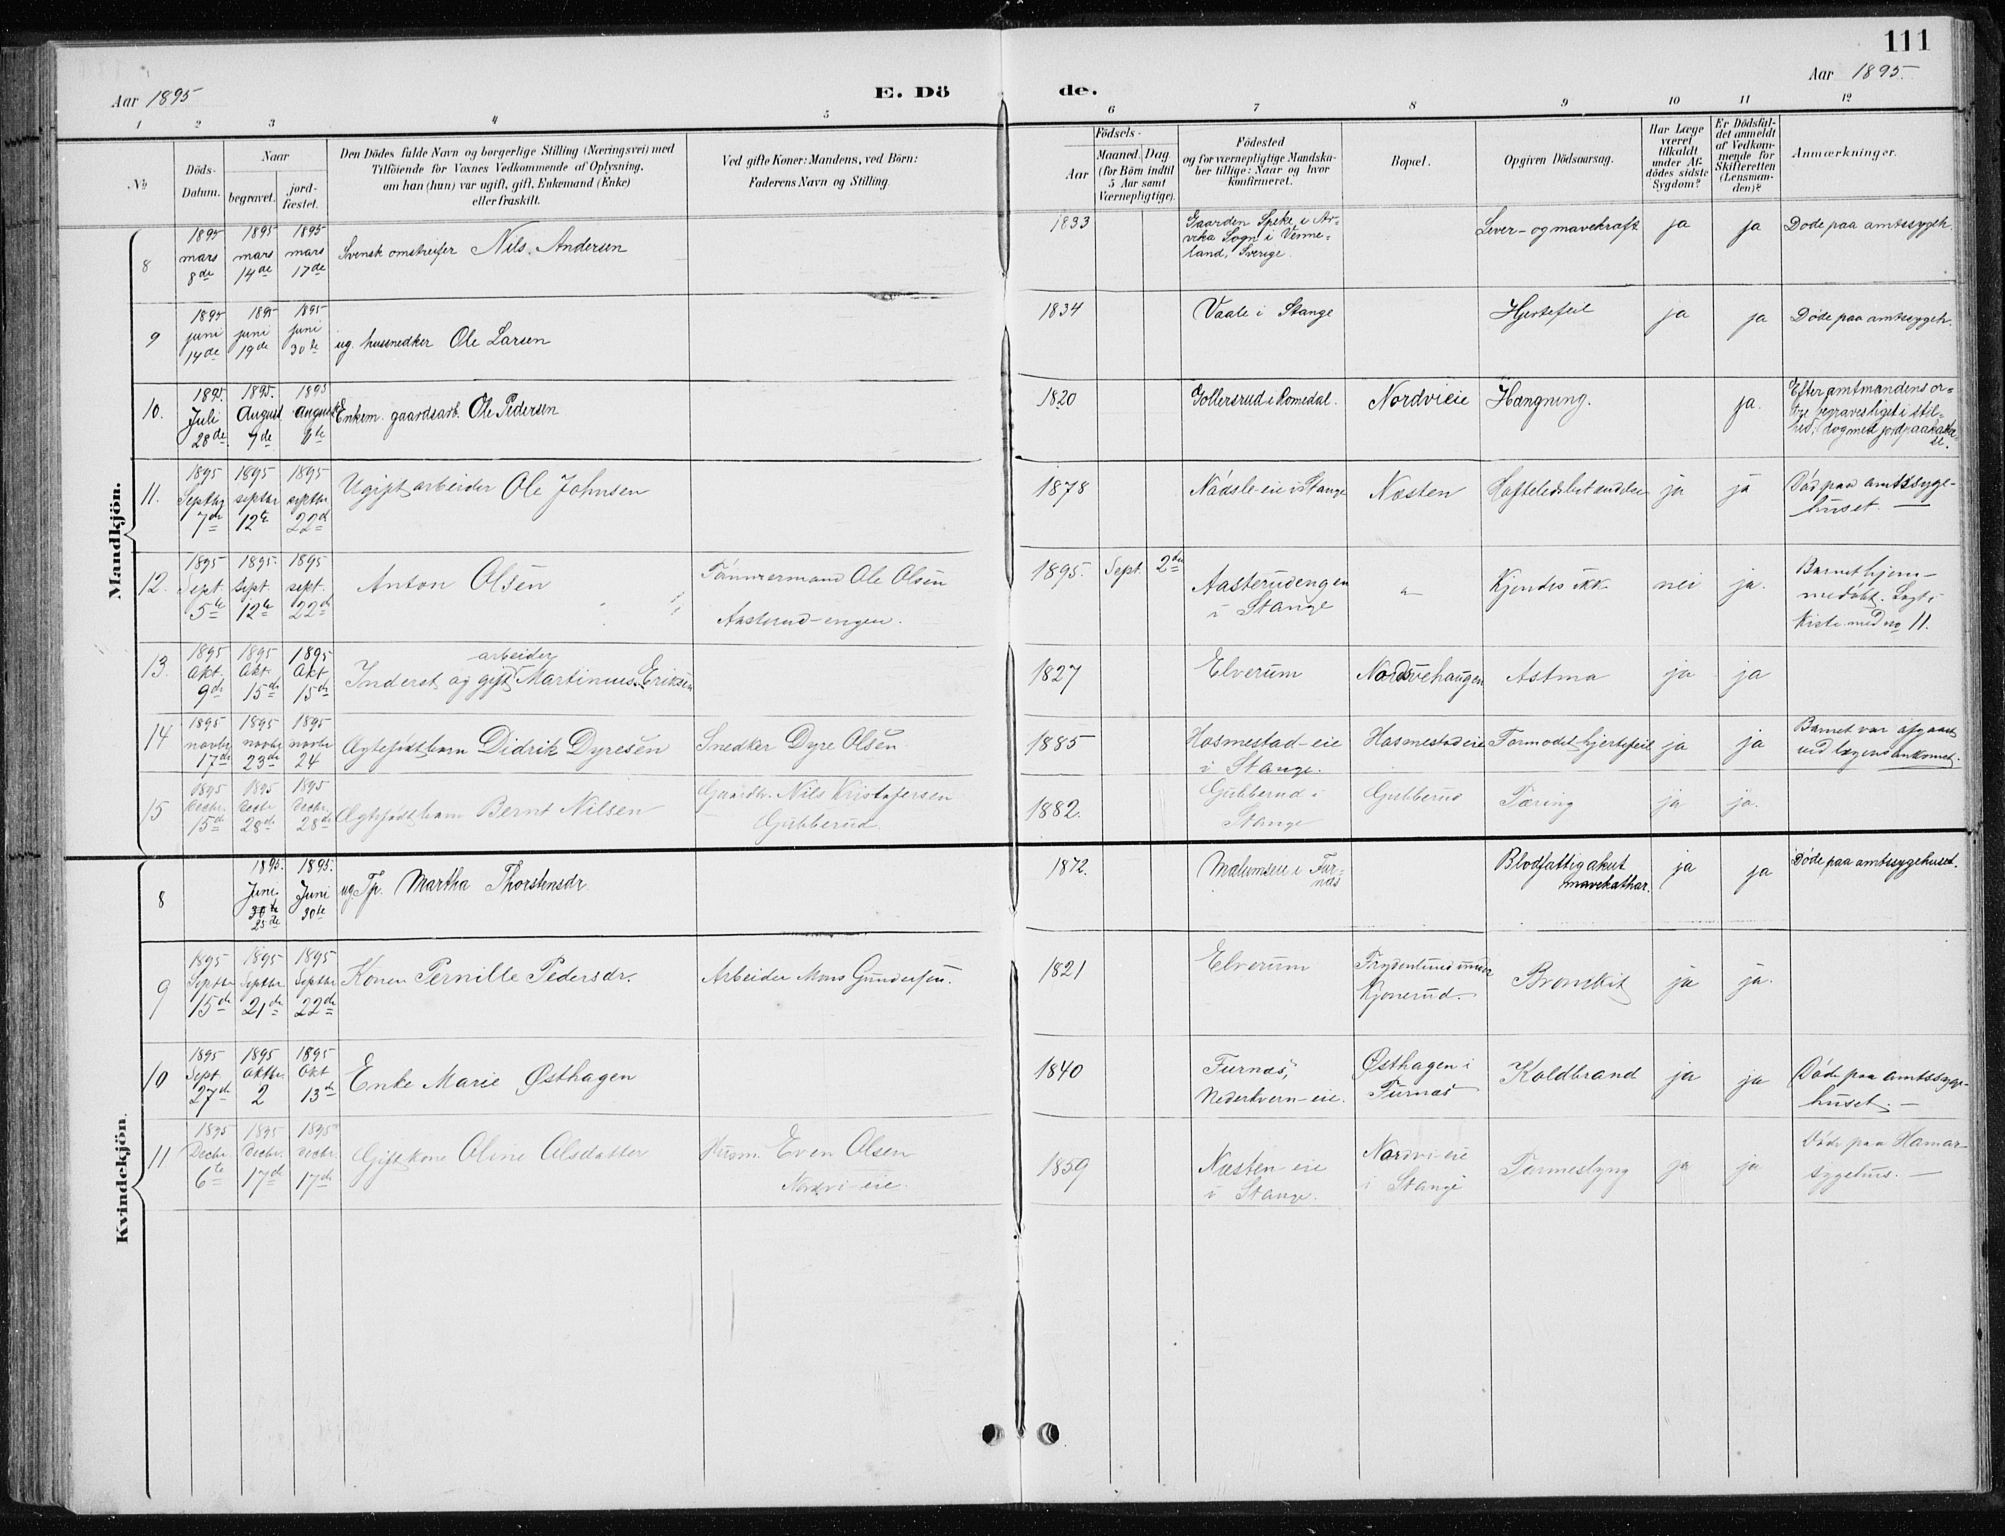 111
Aar 1895
E. Dö
de.
Aar 1895.
1 2 3 4 5 6 7 8 9 10 11 12
No
Döds-
Datum.
Naar
begravet.
jord-
fæstet.
Den Dödes fulde Navn og borgerlige Stilling (Næringsvei) med
Tilföiende for Voxnes Vedkommende af Oplysning,
om han (hun) var ugift, gift, Enkemand (Enke)
eller fraskilt.
Ved gifte Koner: Mandens, ved Börn:
Faderens Navn og Stilling.
Födsels-
Aar
Maaned.
Dag
(for Börn indtil
5 Aar samt
Værnepligtige).
Födested
og for værnepligtige Mandska-
ber tillige: Naar og hvor
konfirmeret.
Bopæl.
Opgiven Dödsaarsag.
Har Læge
været
tilkaldt
under Af-
dödes sidste
Sygdom?
Er Dödsfal-
det anmeldt
af Vedkom-
mende for
Skifteretten
(Lensman-
den)?
Anmærkninger.
Mandkjön.
8
1895
mars
8de
1895
mars
14de
1895
mars
17de
Svensk omstreifer Nils Andersen
1833
Gaarden Speke i Ar-
vika Sogn i Verme-
land, Sverige.
Lever- og mavekræft
ja
ja
Døde paa amtssygeh.
9
1895
juni
14de
1895
juni
19de
1895
juni
30te
ug. hussnedker Ole Larsen
1834
Vaale i Stange
Hjertefeil
ja
ja
Døde paa amtssygeh.
10.
1895.
Juli
28de
1895.
August
7de
1895
August
Enkem. gaardsarb. Ole Pedersen
1820
Gollersrud i Romedal.
Nordvieie
Hængning.
ja.
Efter amtmandens or-
dre begravet liget i stil-
hed, dog med jordpaakastel-
se.
11.
1895
Septbr
7de
1895
septbr
12te
1895
septbr
22de
Ugift arbeider Ole Johnsen
1878
Nådsle-eie i Stange
Næsten
Hofteledsbetændelse
ja
ja
Död paa amtssyge-
huset.
12.
1895
Sept.
5te
1895.
Sept.
12te
1895
sept.
22de
Anton Olsen
Tømmermand Ole Olsen
Aasterud-engen.
1895.
Sept.
2den
Aasterudengen
i Stange
"
Kjendes ikke
nei
ja.
Barnet hjem-
medöbt. Lagt i
kiste med no 11.
13.
1895
Okt.
9de
1895
Okt.
15de
1895
Okt
15de
arbeider
Inderst og gift Martinius Eriksen
1827
Elverum
Nordsvehaugen
Astma
ja
ja
14
1895
novbr
17de
1895
novbr
23de
1895
novbr
24
Ægtefødt barn Didrik Dyresen
Snedker Dyre Olsen
1885
Hosmestad-eie
i Stange.
Hosmestad eie
Formodet hjertefeil
ja
ja
Barnet var afgaaet
ved lægens ankomst.
15
1895
Decbr.
15de
1895
Decbr.
28de
1895
Decbr.
28de
Ægtefødt barn Bernt Nilsen
Gaardbr. Nils Kristofersen
Gubberud.
1882.
Gubberud i
Stange
Gubberud
Tæring
ja
ja.
Kvindekjön.
8
1895.
Juni
30te
25de
1895.
Juni
30te
ug. Tp. Martha Thorstensdr.
1872.
Mælumseie i Fur-
nes
Blodfattig akut
mavekathar.
ja
ja
Døde paa amtssygehuset.
9
1895
Septbr
15de
1895
Septbr
21de
1895
Septbr
22de
Konen Pernille Pedersdr.
Arbeider Mons Gundersen.
1821
Elverum
Frydenlund under
Kjonerud.
Bronkit
ja
ja.
10
1895
Sept.
27de
1895
Oktbr.
2
1895
Okt
13de
Enke Marie Østhagen
1840
Furnæs,
Nederkvern-eie.
Østhagen i
Furnæs
Koldbrand
ja
ja
Døde paa amtssyge-
huset.
11
1895
Decbr.
6te
1895
Decbr.
17de
1895
Decbr.
17de
Gift kone Oline Olsdatter
Husm. Even Olsen
Nordvi-eie.
1859
Næsten-eie
i Stange.
Nordvi-eie
i Stange
Tarmeslyng
ja
ja
Døde paa Hamar
sygehus.